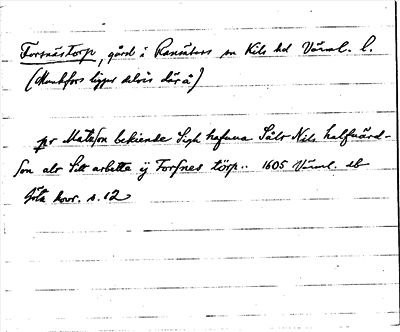 Forsnästorp, gård i Ransäters sn Kils hd Värml. l.
(Munkfors ligger delvis därå)
pr Matsson bekiende Sigh hafuua Sålt Nils halfuård-
son alt Sitt arbette ÿ Forsnes törp.. 1605 Värml. db
Göta hovr. s. 12